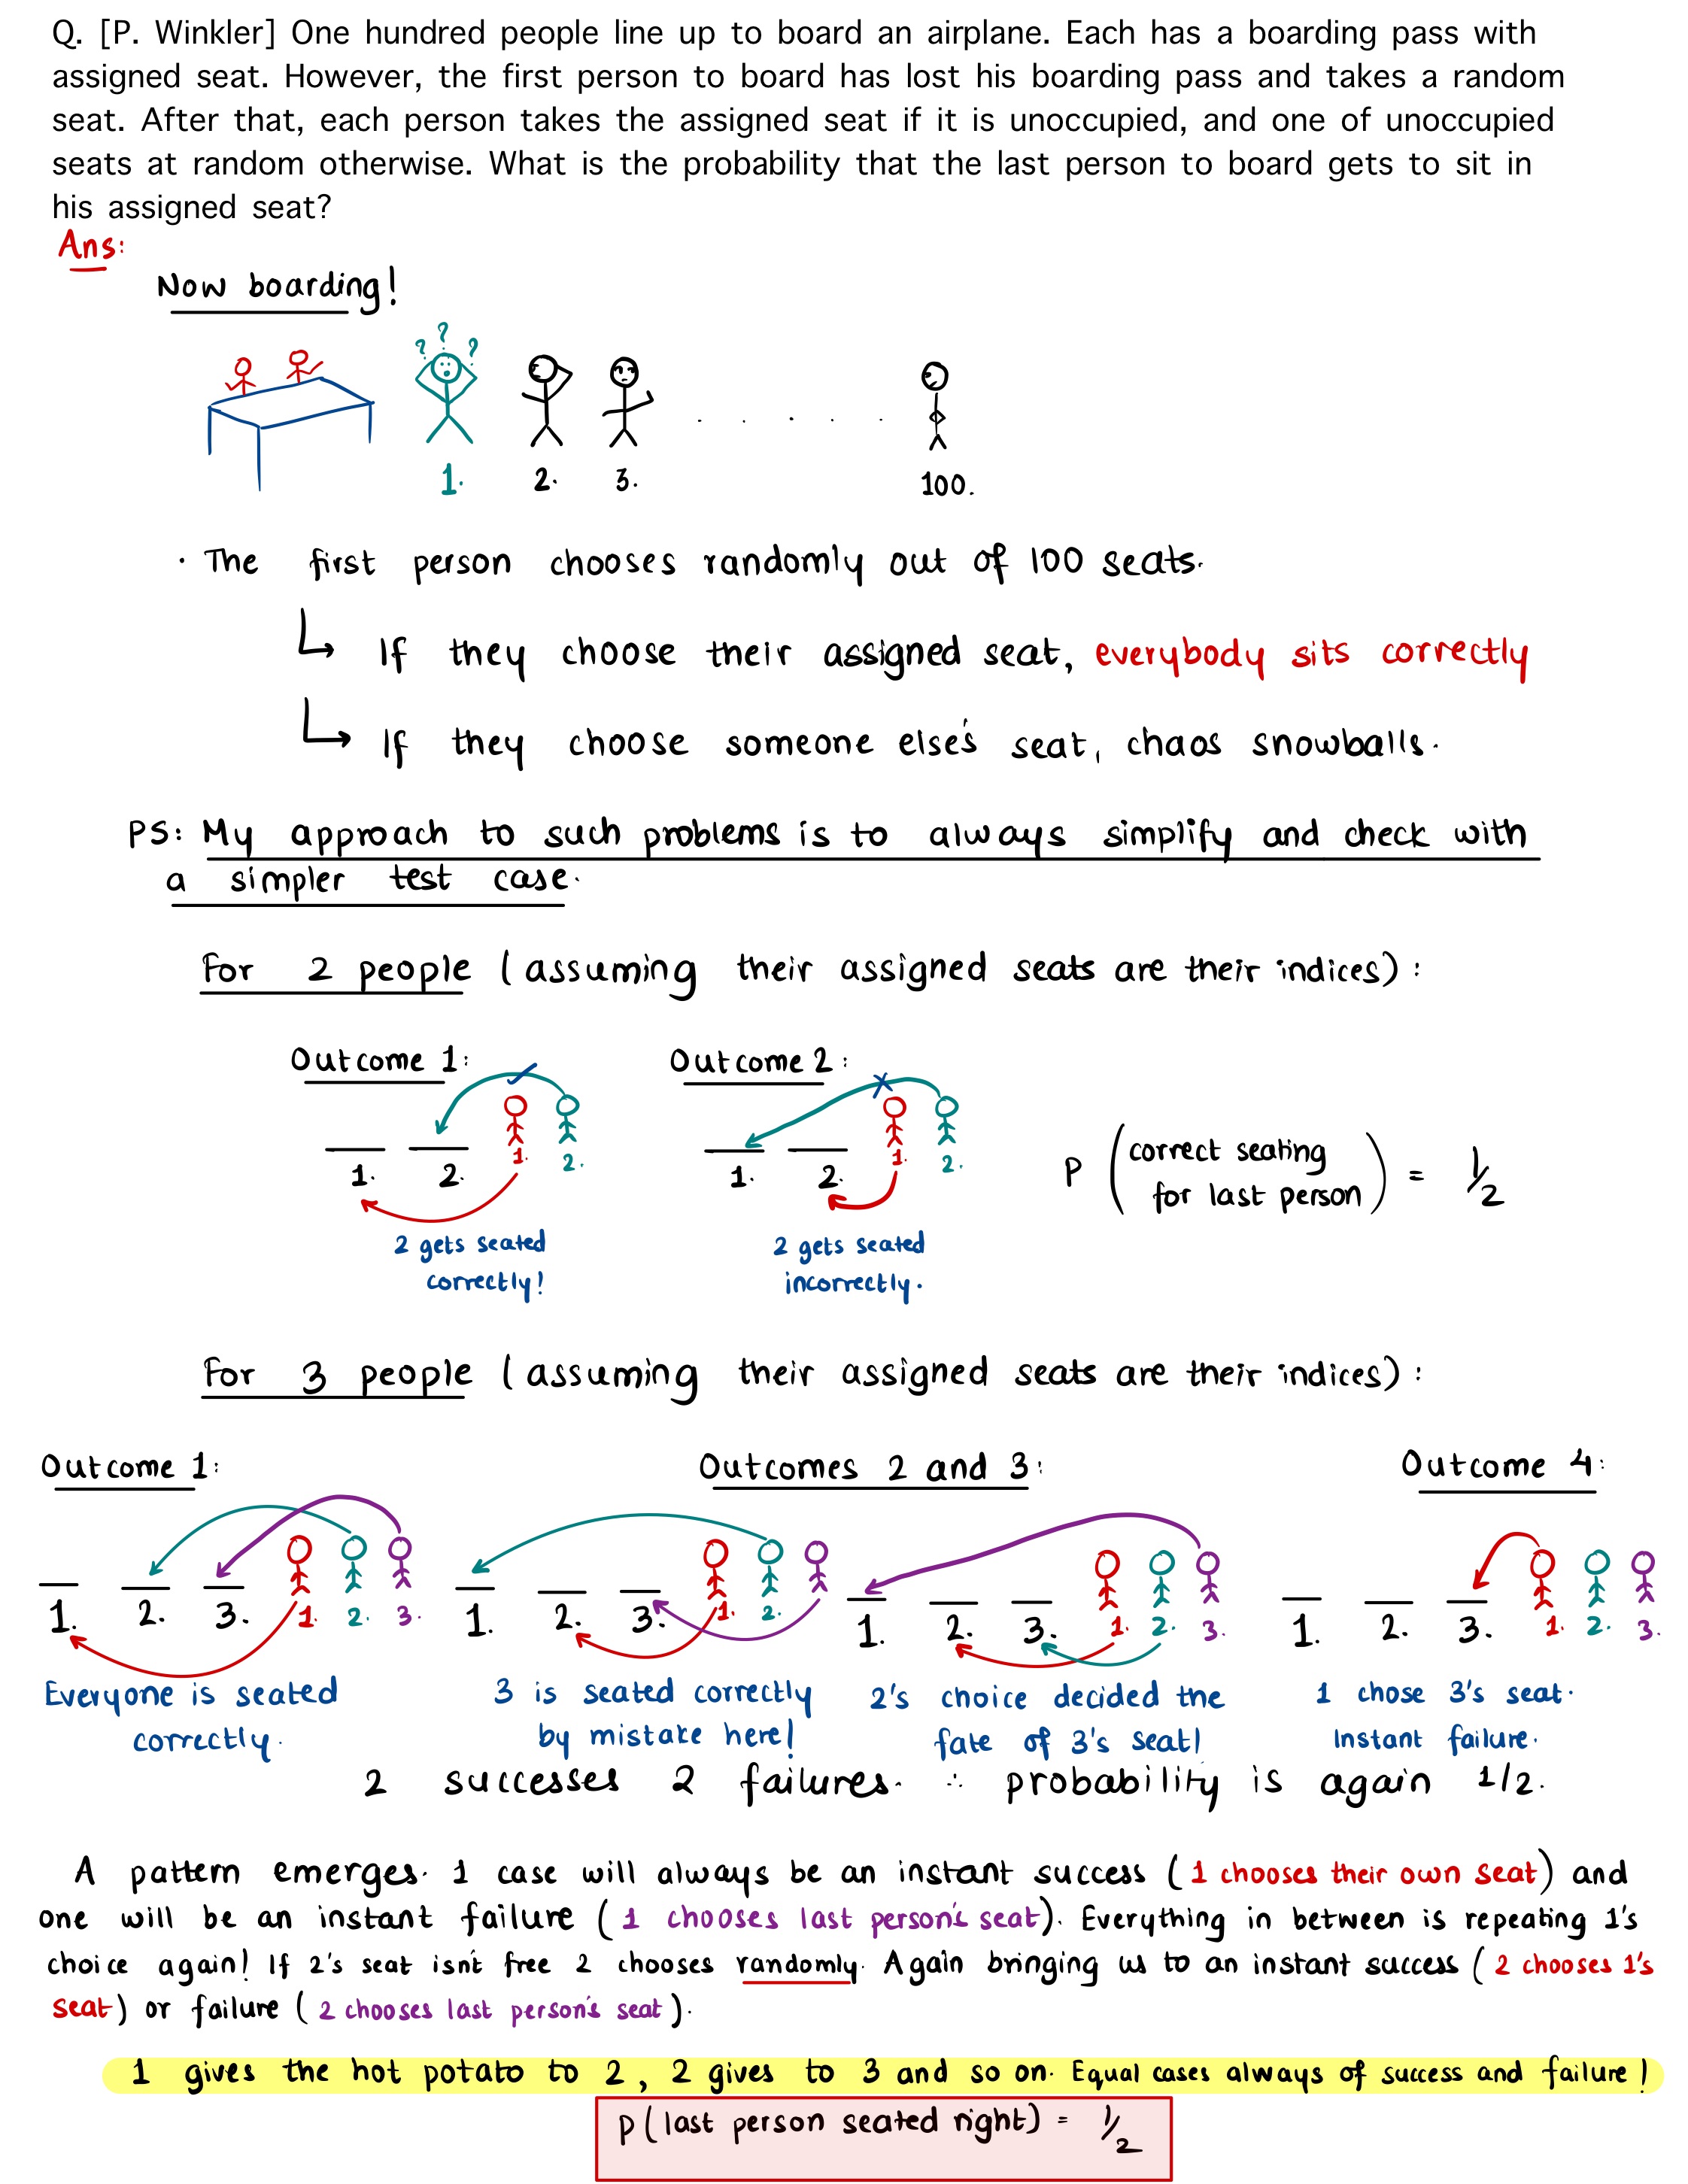 Q. [P. Winkler] One hundred people line up to board an airplane. Each has a boarding pass with
assigned seat. However, the first person to board has lost his boarding pass and takes a random
seat. After that, each person takes the assigned seat if it is unoccupied, and one of unoccupied
seats at random otherwise. What is the probability that the last person to board gets to sit in
his assigned seat?
Ans:
Now boarding!
? ? ?
1. 2. 3. . . . . . 100.
· The first person chooses randomly out of 100 seats.
↳ If they choose their assigned seat, everybody sits correctly
↳ If they choose someone else's seat, chaos snowballs.
PS: My approach to such problems is to always simplify and check with
a simpler test case.
For 2 people (assuming their assigned seats are their indices):
Outcome 1: Outcome 2:
1. 2. 1. 2. 1. 2. 1. 2.
P (correct seating for last person) = 1/2
2 gets seated correctly!
2 gets seated incorrectly.
For 3 people (assuming their assigned seats are their indices):
Outcome 1: Outcomes 2 and 3: Outcome 4:
1. 2. 3. 1. 2. 3. 1. 2. 3. 1. 2. 1. 2. 3. 1. 2. 3. 1. 2. 3. 1. 2. 3.
Everyone is seated correctly.
3 is seated correctly by mistake here!
2's choice decided the fate of 3's seat!
1 chose 3's seat. Instant failure.
2 successes 2 failures. ∴ probability is again 1/2.
A pattern emerges. 1 case will always be an instant success (1 chooses their own seat) and
one will be an instant failure (1 chooses last person's seat). Everything in between is repeating 1's
choice again! If 2's seat isn't free 2 chooses randomly. Again bringing us to an instant success (2 chooses 1's
seat) or failure (2 chooses last person's seat).
1 gives the hot potato to 2, 2 gives to 3 and so on. Equal cases always of success and failure!
P(last person seated right) = 1/2